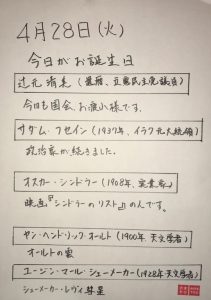 4月28日(火)
今日がお誕生日
辻元清美(還暦、立憲民主党議員)
今日も国会、お疲れ様です。
サダム・フセイン(1937年、イラク元大統領)
政治家が続きました。
オスカー・シンドラー(1908年、実業家)
映画『シンドラーのリスト』の人です。
ヤン・ヘンドリック・オールト(1900年 天文学者)
オールトの雲
ユージン・マール・シューメーカー(1928年 天文学者)
シューメーカー・レヴィ彗星